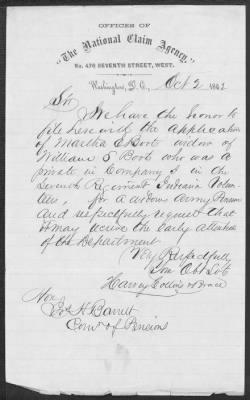 OFFICES OF
"The National Claim Agency,"
No. 476 SEVENTH STREET, WEST.
Washington, D. C., Oct 2 1862
Sir
We have the honor to
file herewith the application
of Martha E Boots widow of
William S Boots who was a
private in Company I in the
Seventh Regiment Indiana Volun
teers, for a widow Army Pension
and respectfully request that
it may receive the early attention
of the Department
Very Respectfully
Your Obt Svts
Harvey Collins & Brace
Hon
Jos H Barrett
Comr of Pensions